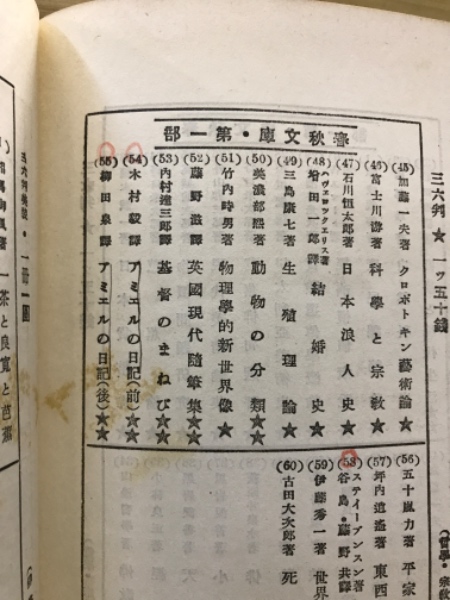 三六判 ★ 一ッ五十錢
春秋文庫・第一部
(45) 加藤一夫著 クロポトキン藝術論★
(46) 富士川游著 科學と宗敎★
(47) 石川恒太郎著 日本浪人史★
(48) ハヴエロツクエリス著 増田一郎譯 結婚史★
(49) 三島康七著 生殖理論★
(50) 美濃部熙著 動物の分類★★
(51) 竹内時男著 物理學的新世界像★
(52) 藤野滋譯 英國現代隨筆集★★
(53) 内村達三郎譯 基督のまねび★★
(54) 木村毅譯 アミエルの日記(前)★★
(55) 柳田泉譯 アミエルの日記(後)★★
(56) 五十嵐力著 平家
(57) 坪内逍遙著 東西
(58) ステイーブンスン著 谷島・藤野共譯
(59) 伊藤秀一著 世界
(60) 古田大次郎著 死
一册一圓
一茶と良寬と芭蕉